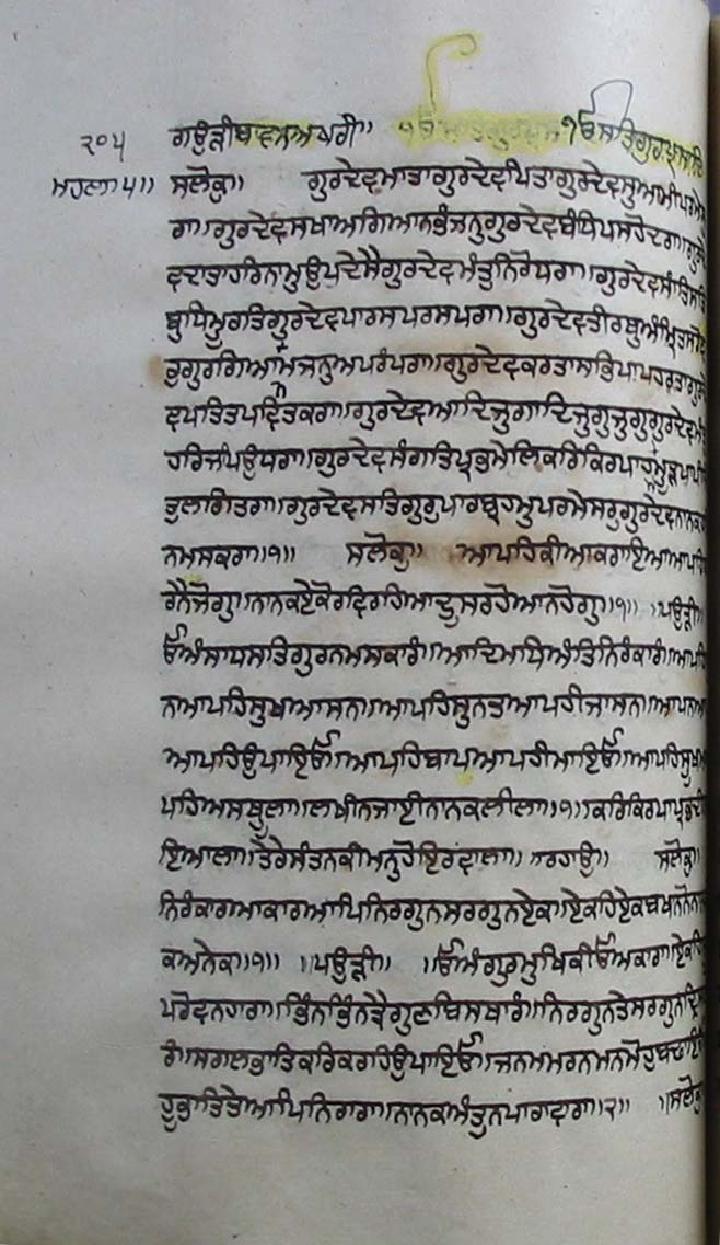 ੨੦੫ ਗਉੜੀਬਾਵਨਅਖਰੀ॥ ੴਸਤਿਗੁਰਪ੍ਰਸਾਦਿ
ਮਹਲਾ੫॥ ਸਲੋਕੁ॥ ਗੁਰਦੇਵਮਾਤਾਗੁਰਦੇਵਪਿਤਾਗੁਰਦੇਵਸੁਆਮੀਪਰਮੇਸੁ
ਰਾ॥ਗੁਰਦੇਵਸਖਾਅਗਿਆਨਭੰਜਨੁਗੁਰਦੇਵਬੰਧਿਪਸਹੋਦਰਾ॥ਗੁਰਦੇ
ਵਦਾਤਾਹਰਿਨਾਮੁਉਪਦੇਸੈਗੁਰਦੇਵਮੰਤੁਨਿਰੋਧਰਾ॥ਗੁਰਦੇਵਸਾਂਤਿਸਤਿ
ਬੁਧਿਮੂਰਤਿਗੁਰਦੇਵਪਾਰਸਪਰਸਪਰਾ॥ਗੁਰਦੇਵਤੀਰਥੁਅੰਮ੍ਰਿਤਸਰੋ
ਰੁਗੁਰਗਿਆਨਮਜਨੁਅਪਰੰਪਰਾ॥ਗੁਰਦੇਵਕਰਤਾਸਭਿਪਾਪਹਰਤਾਗੁਰਦੇ
ਵਪਤਿਤਪਵਿਤਕਰਾ॥ਗੁਰਦੇਵਆਦਿਜੁਗਾਦਿਜੁਗੁਜੁਗੁਗੁਰਦੇਵਮੰਤੁ
ਹਰਿਜਪਿਉਧਰਾ॥ਗੁਰਦੇਵਸੰਗਤਿਪ੍ਰਭਮੇਲਿਕਰਿਕਿਰਪਾਹਮਮੂੜਪਾਪੀ
ਤੁਲਗਿਤਰਾ॥ਗੁਰਦੇਵਸਤਿਗੁਰੁਪਾਰਬ੍ਰਹਮੁਪਰਮੇਸਰੁਗੁਰਦੇਵਨਾਨਕ
ਨਮਸਕਰਾ॥੧॥ ਸਲੋਕੁ॥ ਆਪਹਿਕੀਆਕਰਾਇਆਆਪਹਿ
ਰਨੈਜੋਗੁ॥ਨਾਨਕਏਕੋਰਵਿਰਹਿਆਦੂਸਰਹੋਆਨਹੋਗੁ॥੧॥ ॥ਪਉੜੀ॥
ਓਅੰਸਾਧਸਤਿਗੁਰਨਮਸਕਾਰੰ॥ਆਦਿਮਧਿਅੰਤਿਨਿਰੰਕਾਰੰ॥ਆਪਹਿ
ਨਆਪਹਿਸੁਖਆਸਨ॥ਆਪਹਿਸੁਨਤਆਪਹੀਜਾਸਨ॥ਆਪਨਆ
ਆਪਹਿਉਪਾਇਓ॥ਆਪਹਿਬਾਪਆਪਹੀਮਾਇਓ॥ਆਪਹਿਸੂਖਮ
ਪਹਿਅਸਥੂਲਾ॥ਲਖੀਨਜਾਈਨਾਨਕਲੀਲਾ॥੧॥ਕਰਿਕਿਰਪਾਪ੍ਰਭਦੀ
ਇਆਲਾ॥ਤੇਰੇਸੰਤਨਕੀਮਨੁਹੋਇਰਵਾਲਾ॥ ॥ਰਹਾਉ॥ ਸਲੋਕੁ॥
ਨਿਰੰਕਾਰਆਕਾਰਆਪਿਨਿਰਗੁਨਸਰਗੁਨਏਕ॥ਏਕਹਿਏਕਬਖਾਨਨੋਨਾਨ
ਕਅਨੇਕ॥੧॥ ॥ਪਉੜੀ॥ ॥ਓਅੰਗੁਰਮੁਖਿਕੀਓਅਕਾਰਾ॥ਏਕਹਿ
ਪਰੋਵਨਹਾਰਾ॥ਭਿੰਨਭਿੰਨਤ੍ਰੈਗੁਣਬਿਸਥਾਰੰ॥ਨਿਰਗੁਨਤੇਸਰਗੁਨਦ੍ਰਿ
ਰੰ॥ਸਗਲਭਾਤਿਕਰਿਕਰਹਿਉਪਾਇਓ॥ਜਨਮਮਰਨਮਨਮੋਹੁਬਢਾਇਓ
ਦੁਹੂਭਾਤਿਤੇਆਪਿਨਿਰਾਰਾ॥ਨਾਨਕਅੰਤੁਨਪਾਰਾਵਾਰਾ॥੨॥ ॥ਸਲੋਕੁ